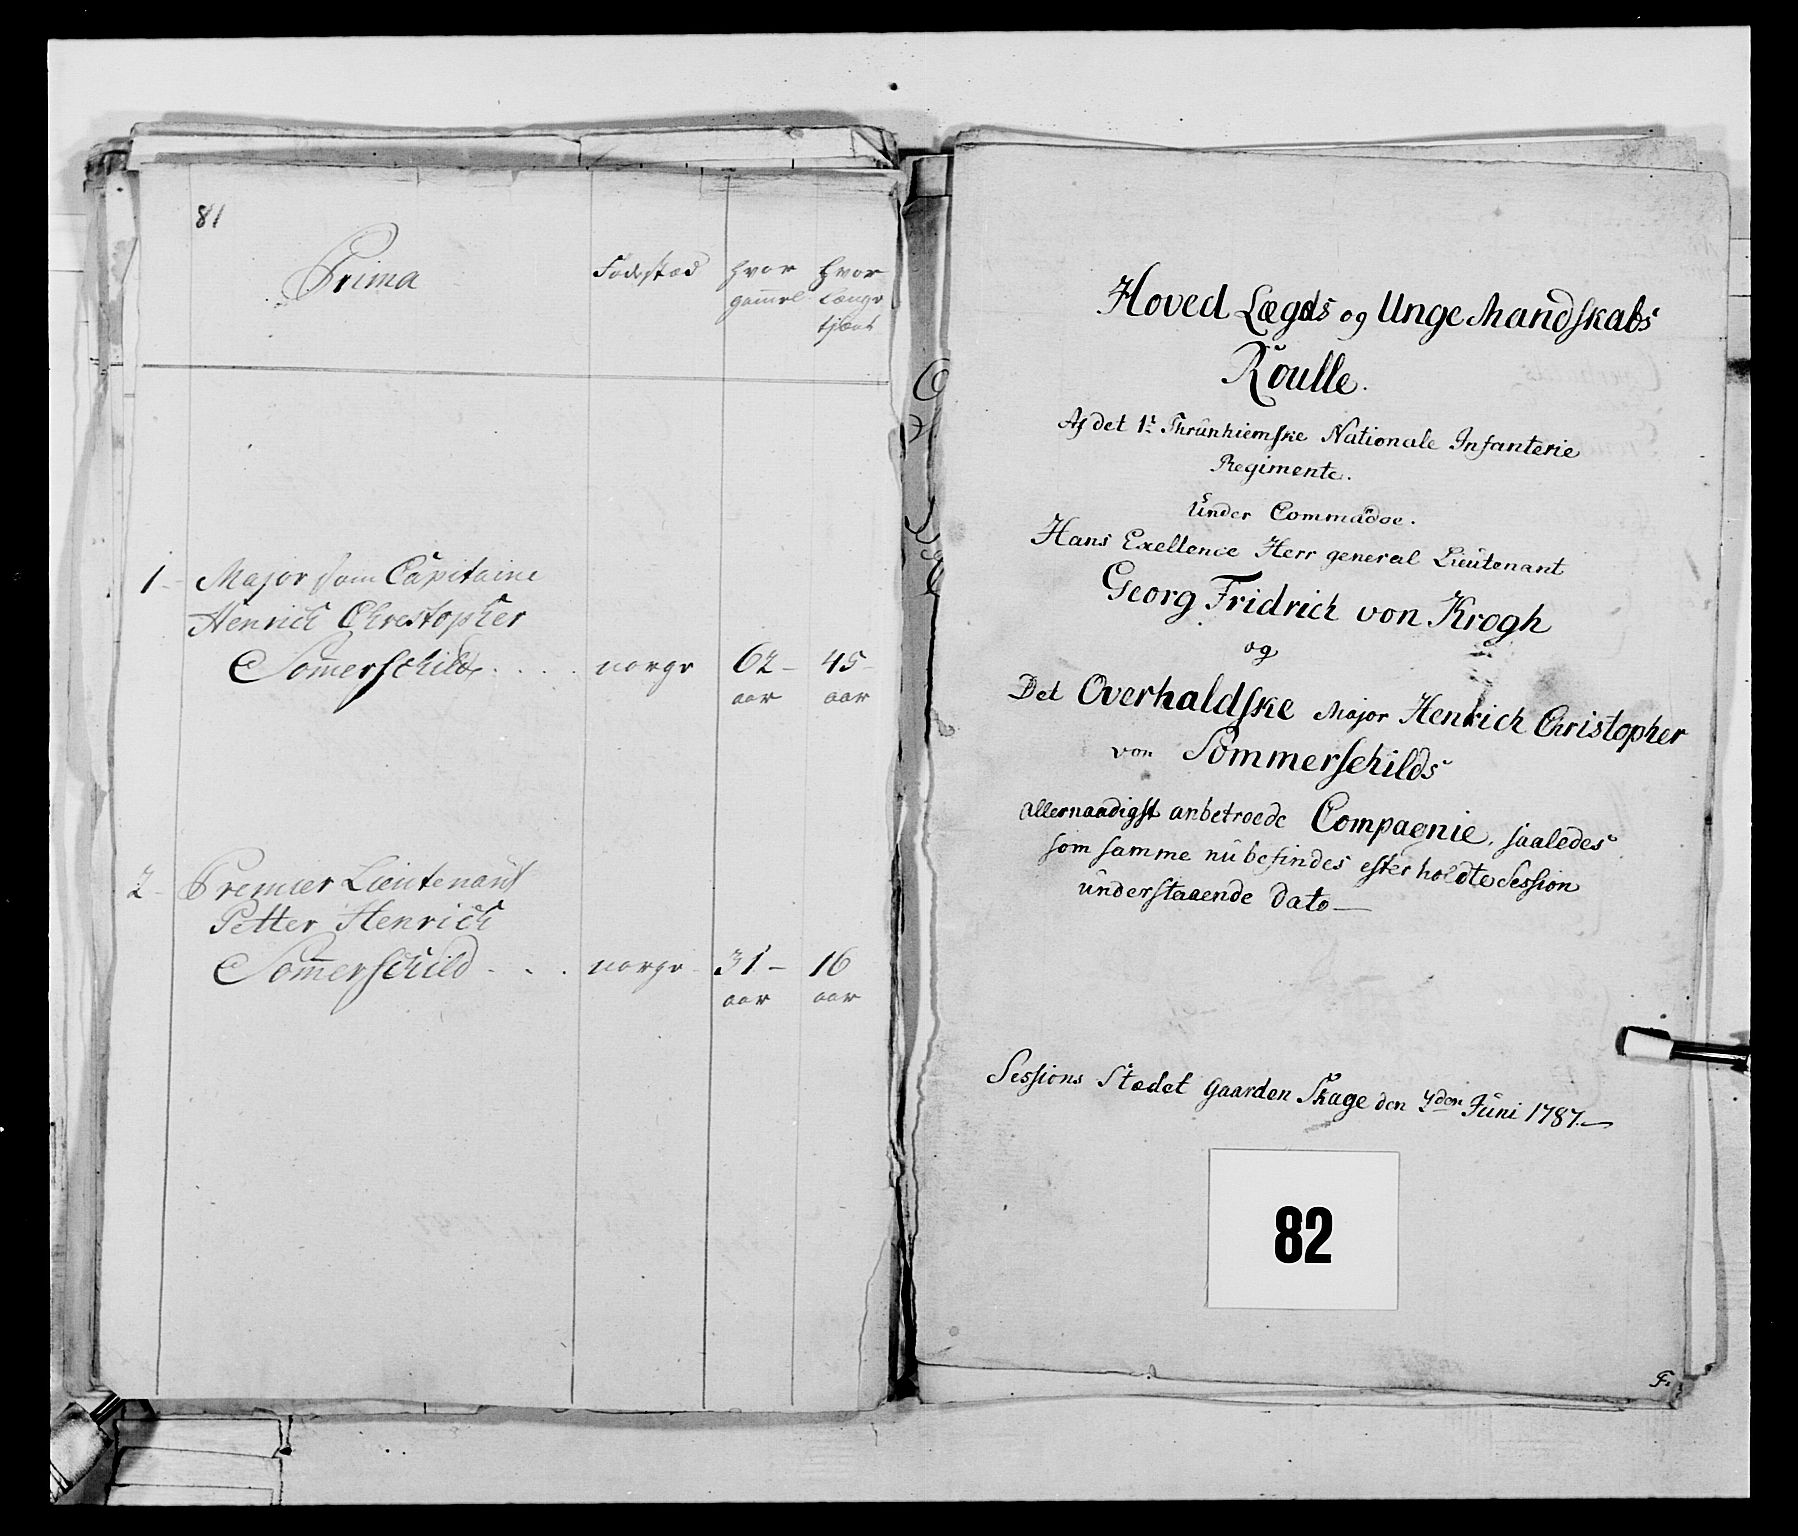 81
Prima
Fødestæd
hvor gammel
hvor længe tjent
1 - Major som Capitaine
Henrich Chrestopher
Som̄erschild . . . . norge 62 - 45 -
aar aar
2 - Premier Lieutenant
Petter Henrich
Som̄erschild . . . norge - 31 - 16
aar aar
Hoved Lægds og Unge Mandskabs
Roulle.
Af det 1t Thrunhiemske Nationale Infanterie
Regimente.
Under Commādoe.
Hans Exellence Herr general Lieutenant
Georg Fridrich von Krogh
og
Det Overhaldske Major Henrich Christopher
von Sommerschilds
allernaadigst anbetroede Compagnie, saaledes
som samme nu befindes efter holdte Session
understaaende Dato —
Sessions Stædet Gaarden Skage den 7den Juni 1787. —
82
F.